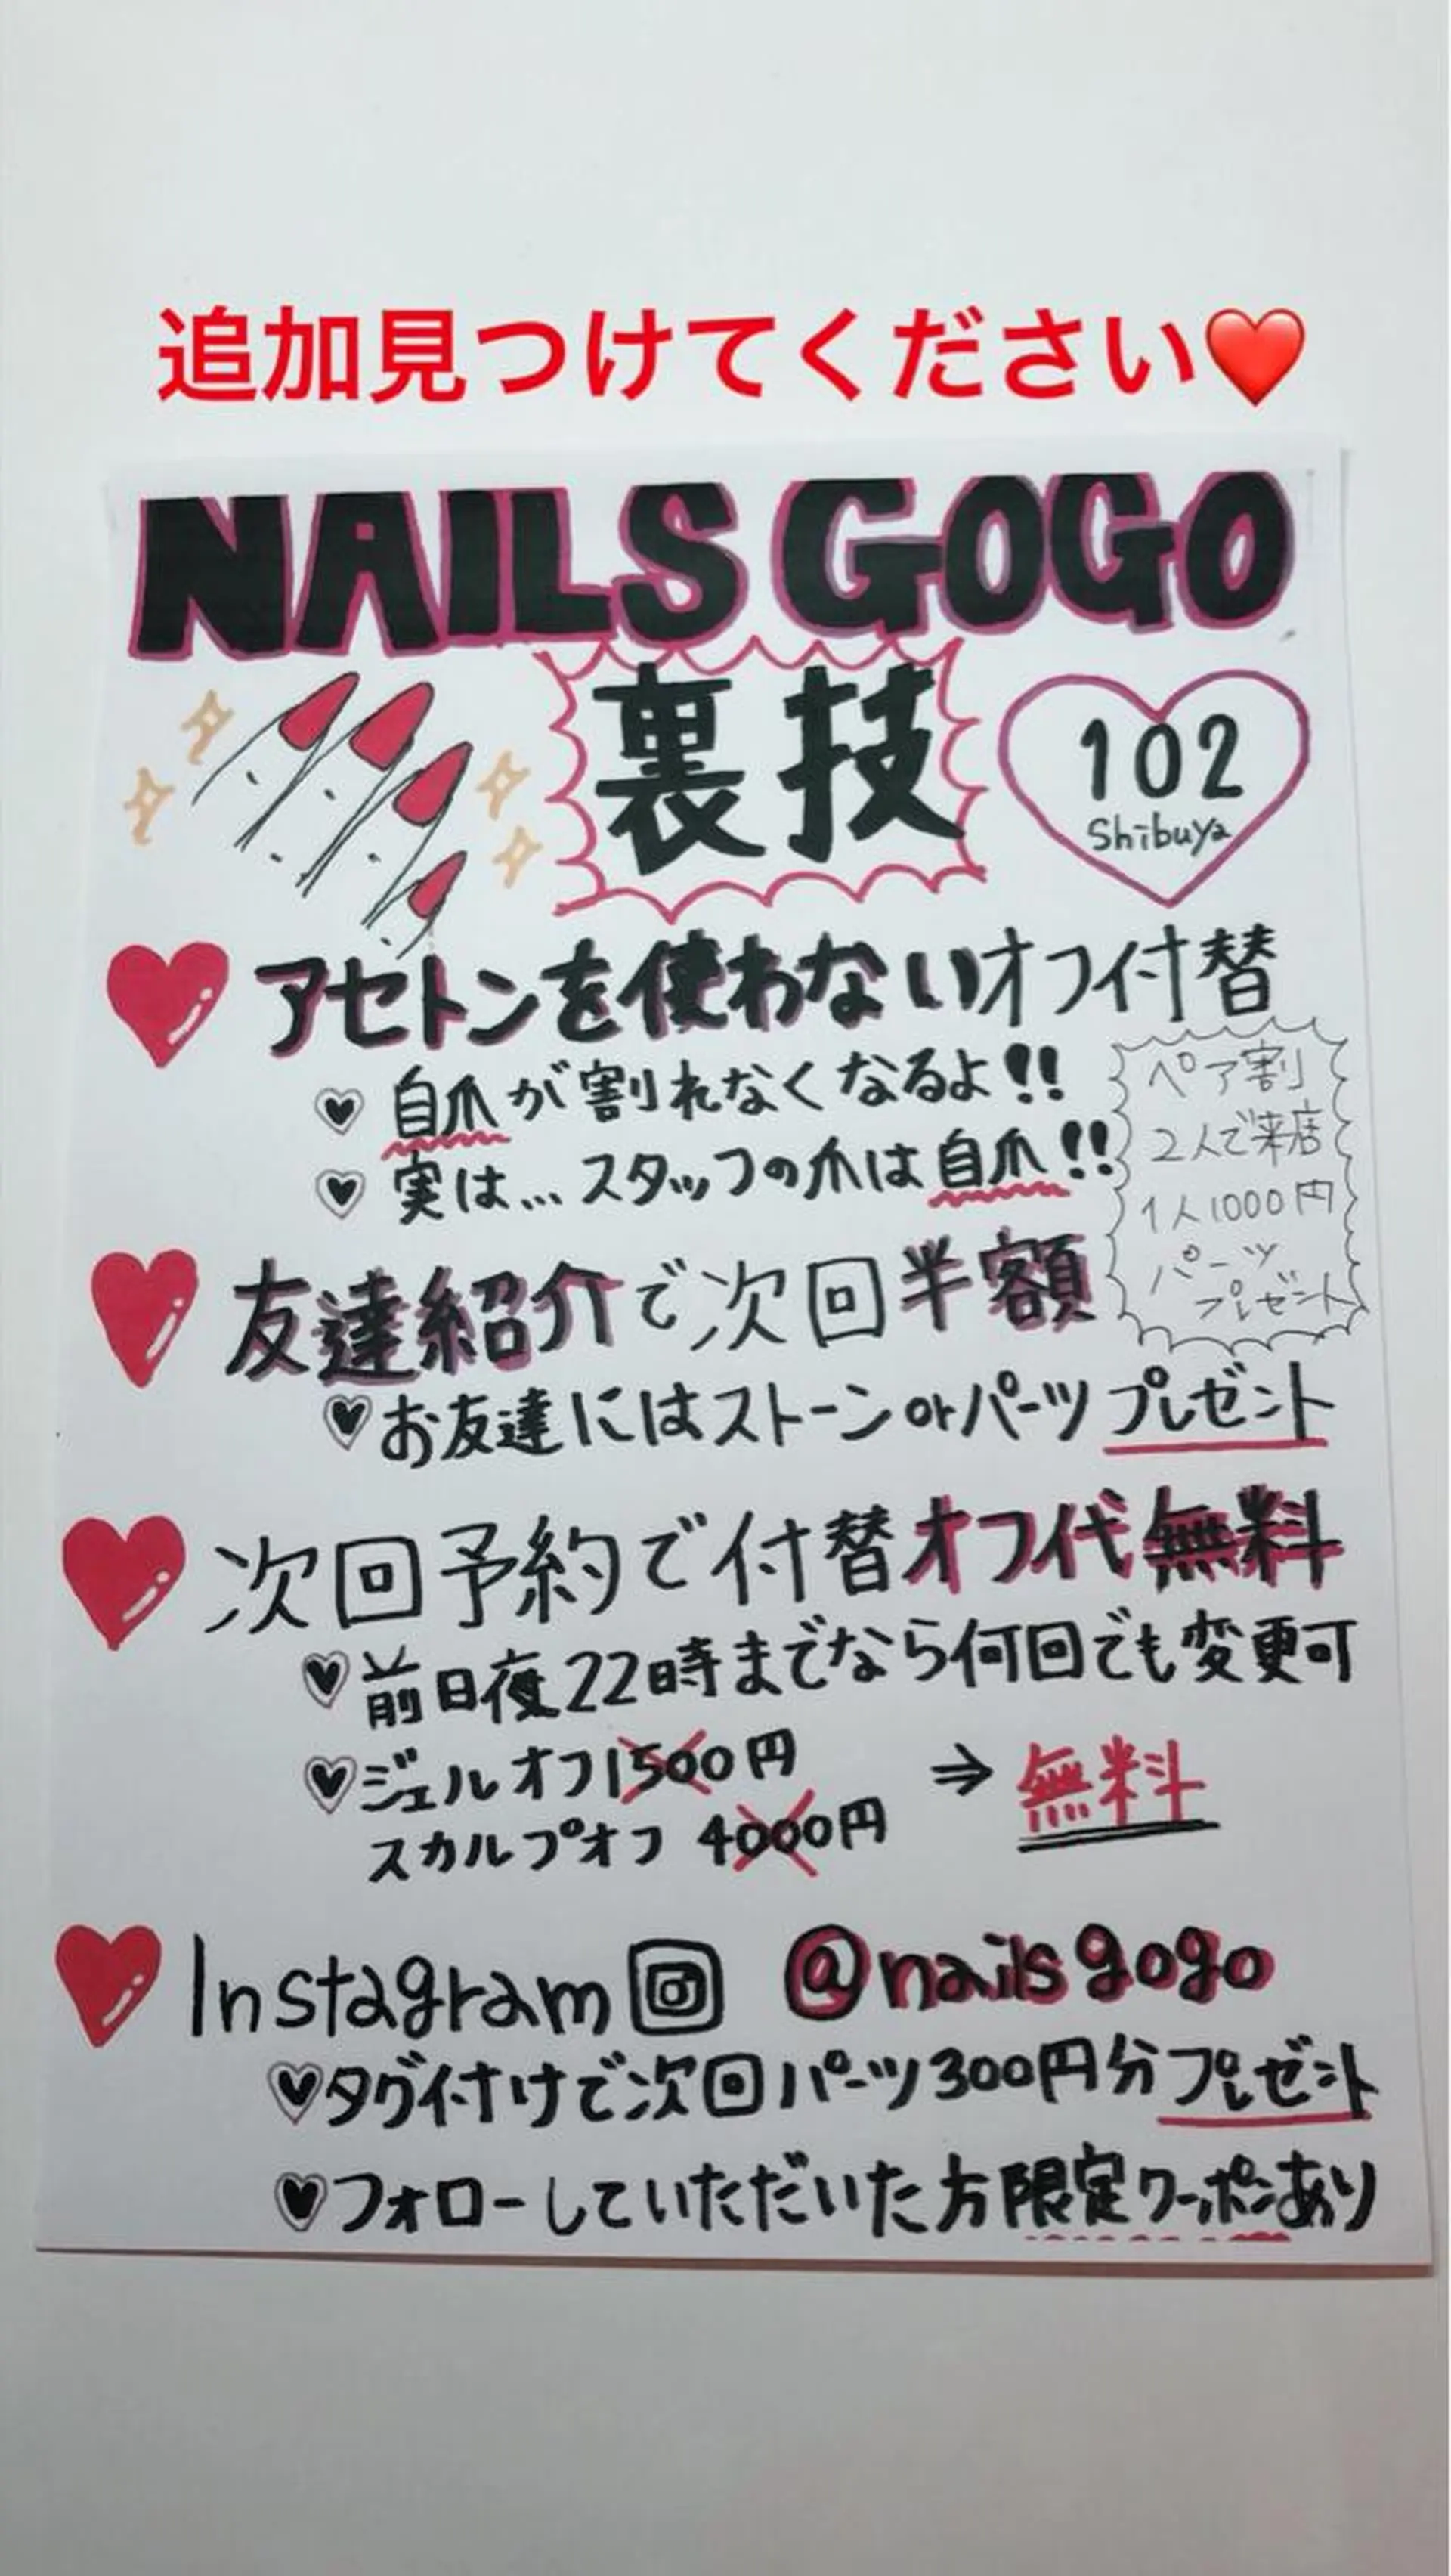 追加見つけてください❤️
NAILS GOGO
裏技
102
Shibuya
アセトンを使わないオフ付替
自爪が割れなくなるよ!!
実は...スタッフの爪は自爪!!
ペア割
2人で来店
1人1000円
パーツ
プレゼント
友達紹介で次回半額
お友達にはストーンorパーツプレゼント
次回予約で付替オフ代無料
前日夜22時までなら何回でも変更可
ジェルオフ1500円
スカルプオフ 4000円
⇒ 無料
Instagram @nailsgogo
タグ付けで次回パーツ300円分プレゼント
フォローしていただいた方限定クーポンあり